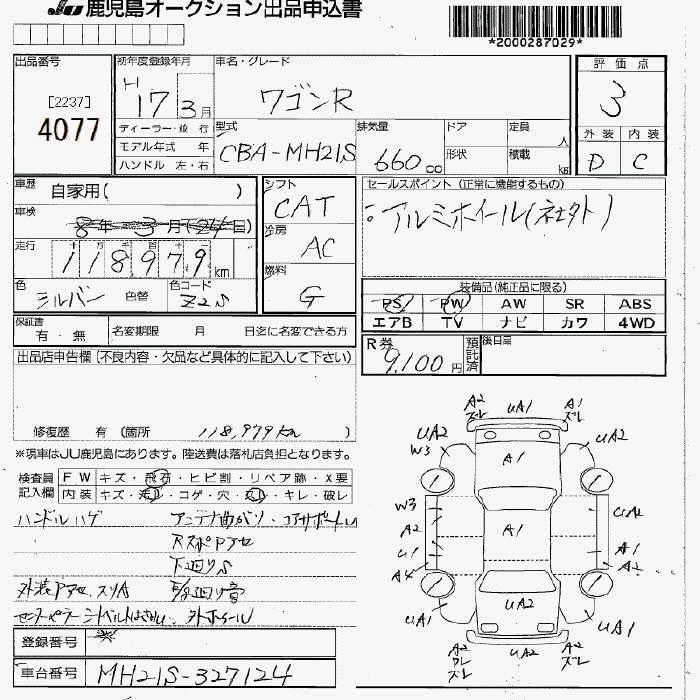 JU 鹿児島オークション出品申込書
*2000287029*
出品番号
[2237]
4077
初年度登録年月
H17 3月
ディーラー・並行
モデル年式 年
ハンドル 左・右
車名・グレード
ワゴンR
型式
CBA-MH21S
排気量
660cc
ドア
形状
定員
人
積載
kg
評価点
3
外装 内装
D C
車歴
自家用( )
車検
8年 3月(24日)
走行
118979km
色
シルバー 色替
色コード
Z2S
シフト
CAT
冷房
AC
燃料
G
セールスポイント (正常に機能するもの)
アルミホイール(社外)
装備品(純正品に限る)
PS PW AW SR ABS
エアB TV ナビ カワ 4WD
保証書
有・無
名変期限 月 日迄に名変できる方
R券
9,100円
預託済
後日品
出品店申告欄(不良内容・欠品など具体的に記入して下さい)
修復歴 有 (箇所 118,979km )
※現車はJU鹿児島にあります。陸送費は落札店負担となります。
検査員記入欄
FW キズ・飛石・ヒビ割・リペア跡・X要
内装 キズ・汚レ・コゲ・穴・スレ・キレ・破レ
ハンドルハゲ アンテナ曲がり・コアサポートU
RスポPアセ
下廻りS
外装Pアセ、スリA
外ホイールU
登録番号
車台番号
MH21S-327124
A2 ズレ UA1 A1 ズレ
UA2 W3 A1 UA2
W3 A2 U1 A4
A1
UA2 A1 A2
UA1 UA2 UA1
A2 ワレ ズレ UA2 A2 ズレ